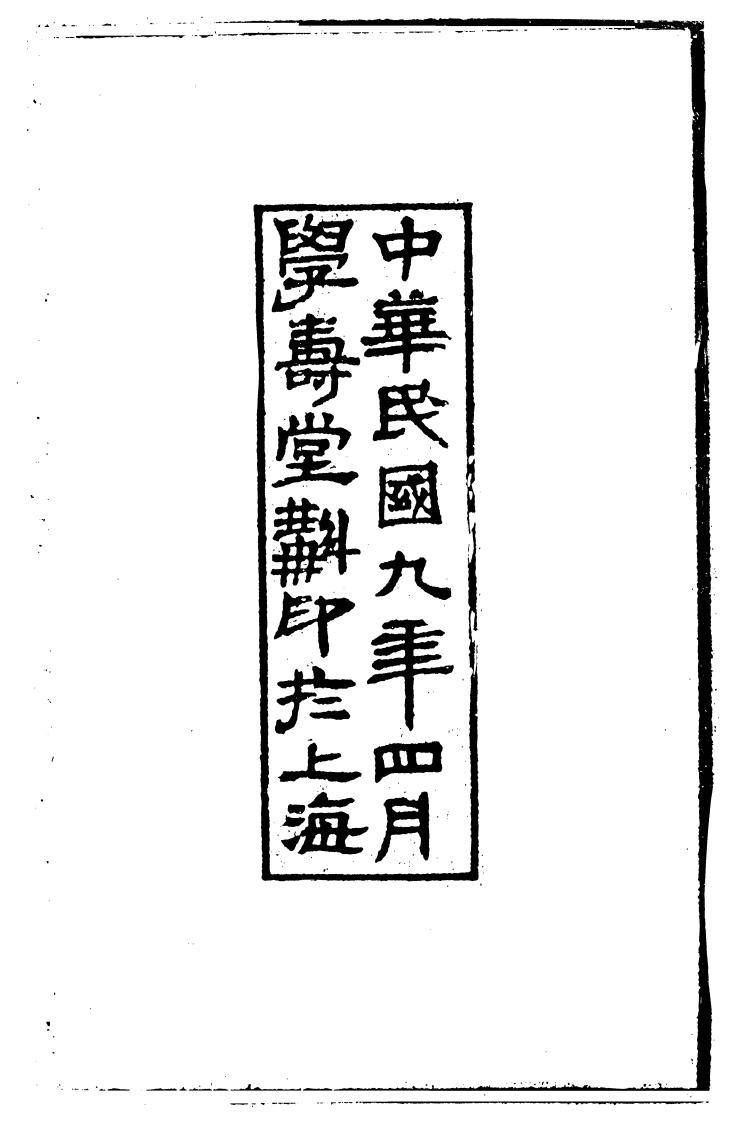 中華民國九年四月
學壽堂斠印於上海